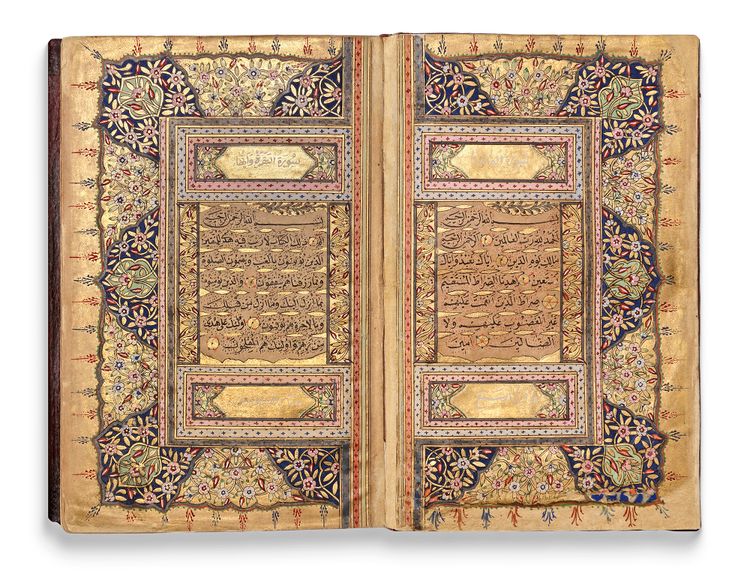 بسم الله الرحمن الرحيم
الحمد لله رب العالمين الرحمن الرحيم
مالك يوم الدين اياك نعبد واياك
نستعين اهدنا الصراط المستقيم
صراط الذين انعمت عليهم
غير المغضوب عليهم ولا
الضالين امين
سورة البقرة
بسم الله الرحمن الرحيم
الم ذلك الكتاب لا ريب فيه هدى للمتقين
الذين يؤمنون بالغيب ويقيمون الصلوة
ومما رزقناهم ينفقون والذين يؤمنون
بما انزل اليك وما انزل من قبلك
وبالاخرة هم يوقنون اولئك على هدى
من ربهم واولئك هم المفلحون